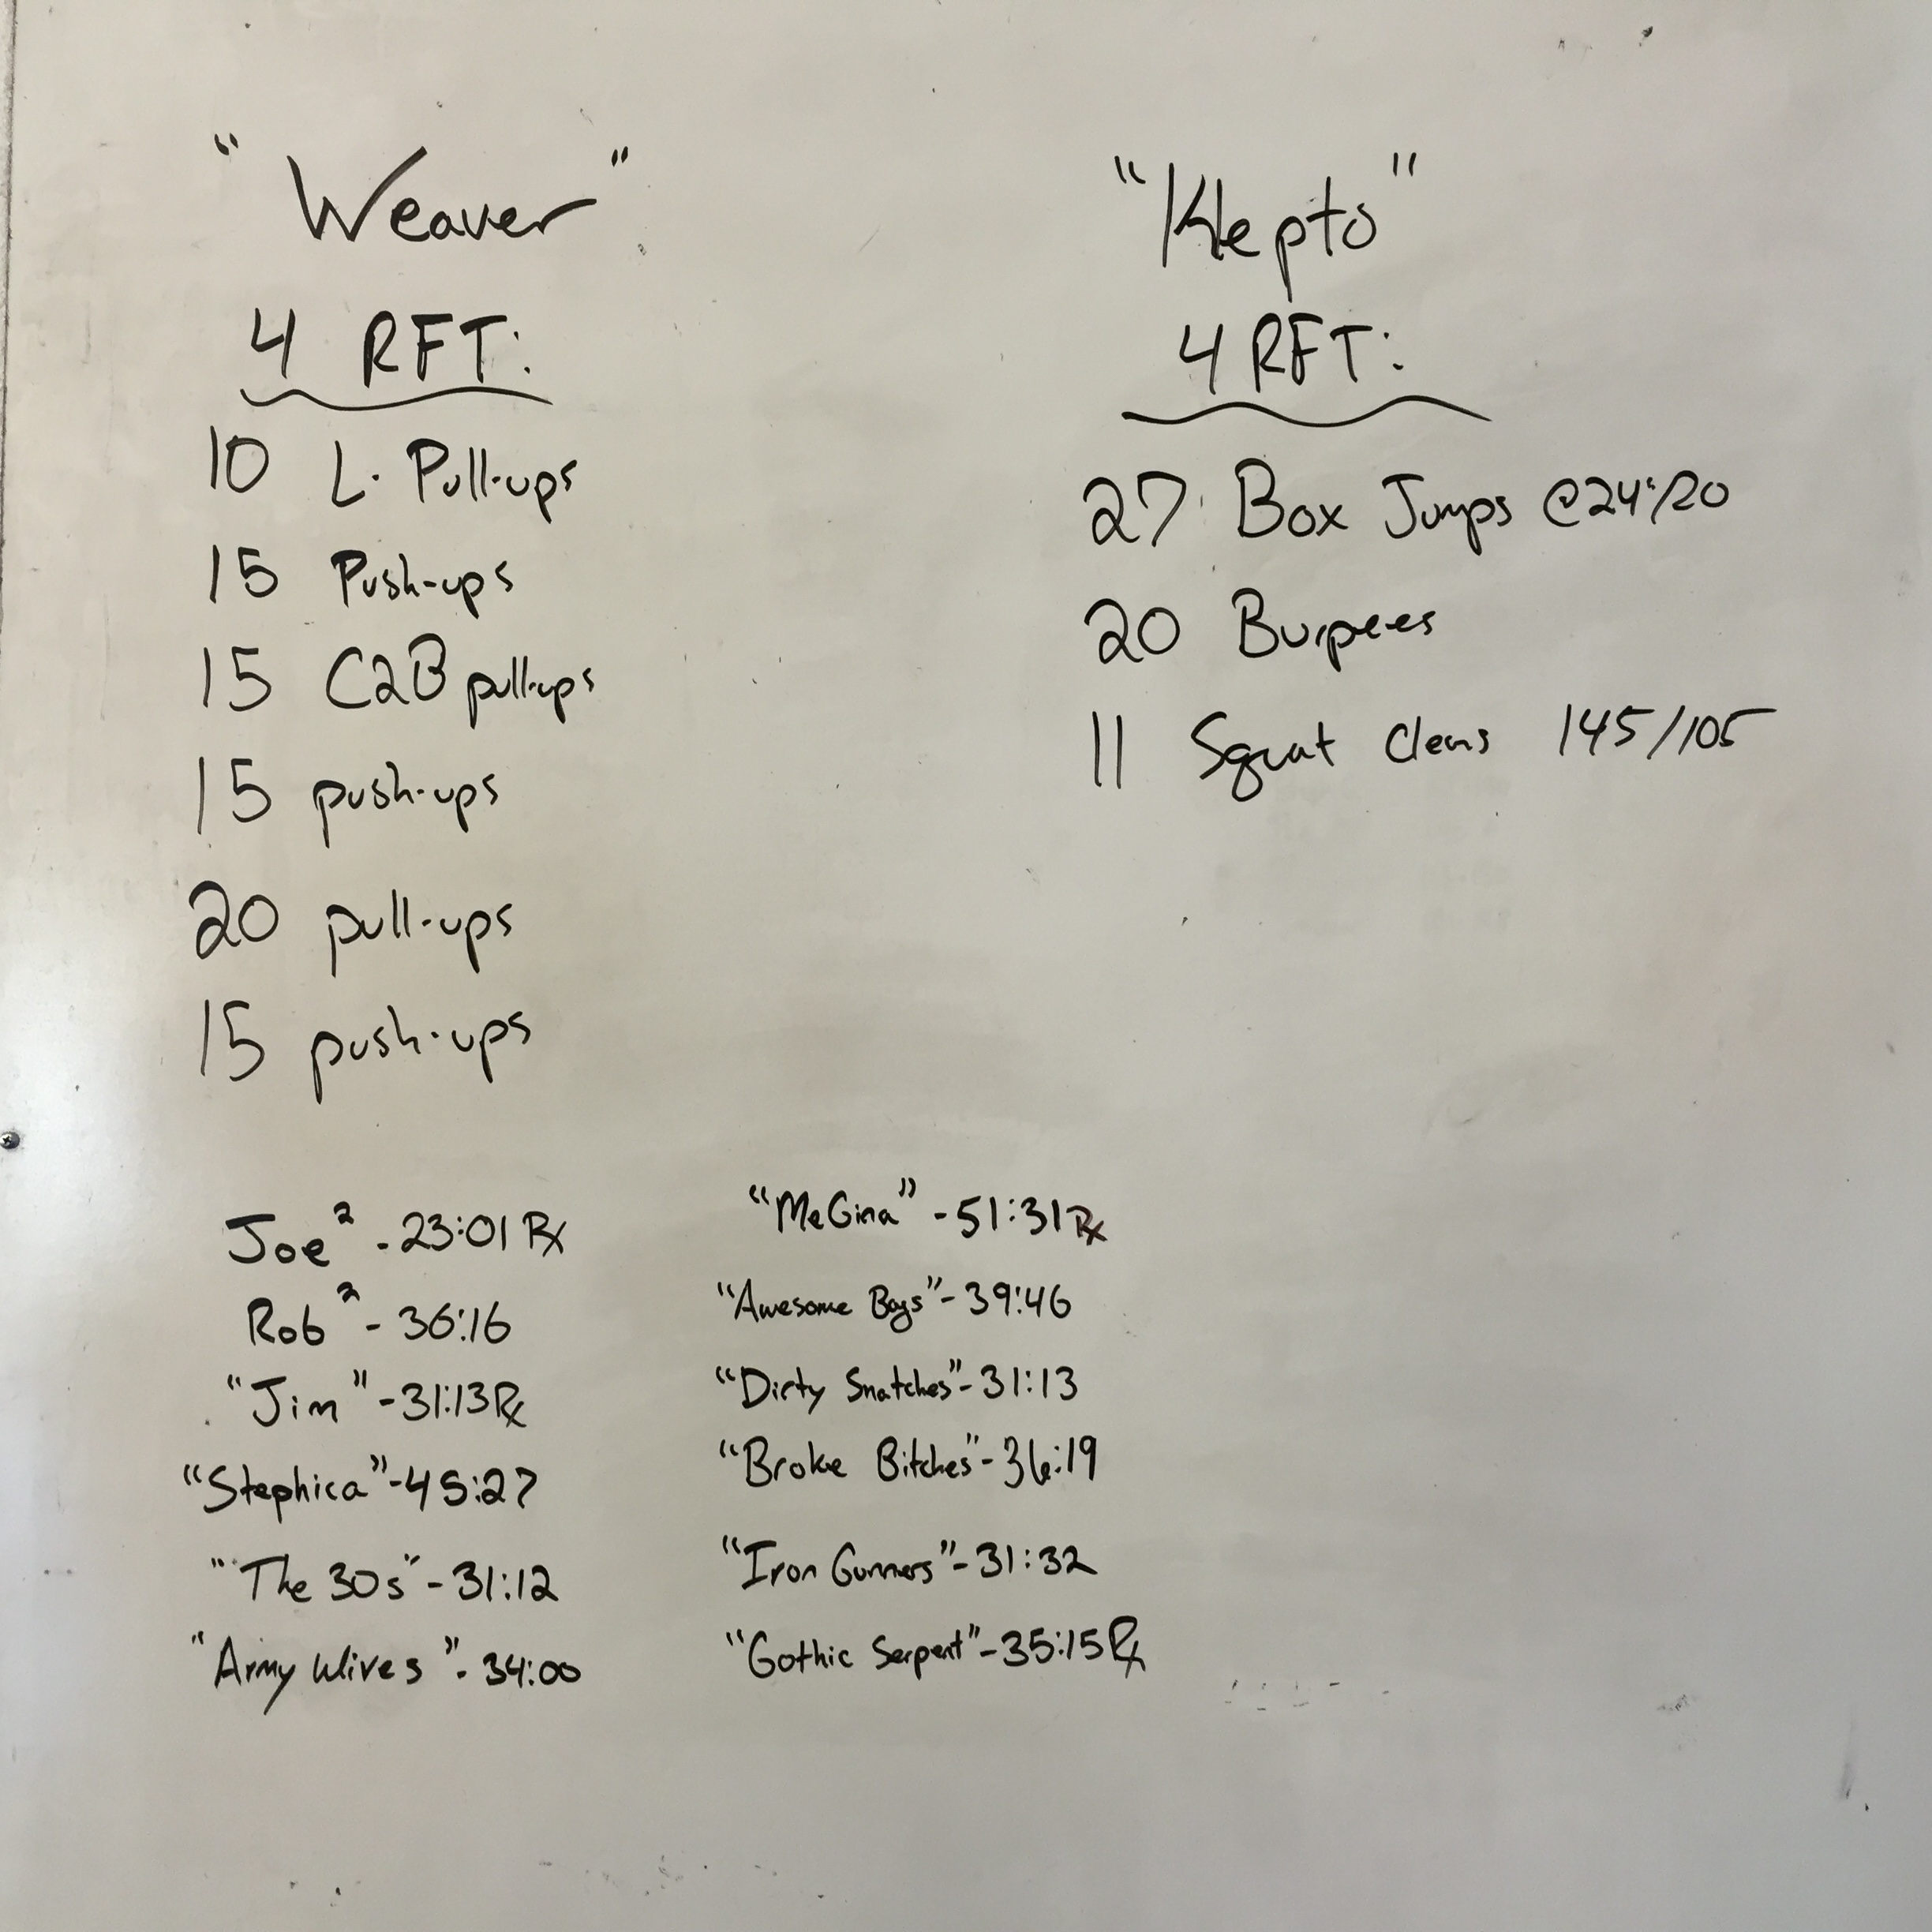 "Weaver"
4 RFT:
10 L. Pull-ups
15 Push-ups
15 C2B pull-ups
15 push-ups
20 pull-ups
15 push-ups
"Klepto"
4 RFT:
27 Box Jumps @24"/20
20 Burpees
11 Squat Cleans 145/105
Joe² - 23:01 Rx
Rob² - 36:16
"Jim" - 31:13 Rx
"Stephica" - 45:27
"The 30s" - 31:12
"Army Wives" - 34:00
"MeGina" - 51:31 Rx
"Awesome Bags" - 39:46
"Dirty Snatches" - 31:13
"Broke Bitches" - 36:19
"Iron Gunners" - 31:32
"Gothic Serpent" - 35:15 Rx